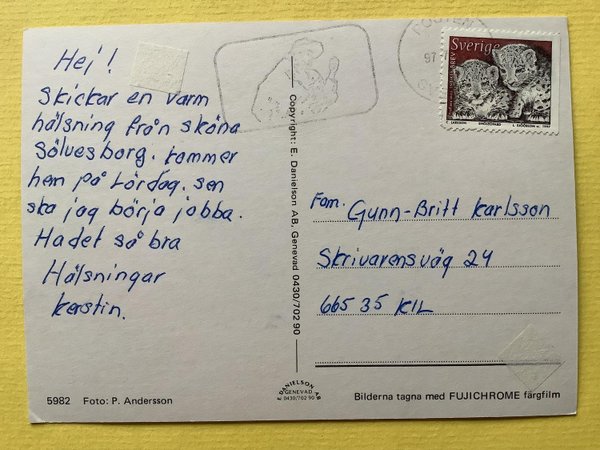 Hej!
Skickar en varm
hälsning från sköna
Sölvesborg. kommer
hem på Lördag. sen
ska jag börja jobba.
Hadet så bra
Hälsningar
kerstin.
5982 Foto: P. Andersson
Copyright: E. Danielson AB, Genevad 0430/702 90
DANIELSON AB
GENEVAD
0430/702 90
POSTEN
97
Sverige
BREV
LARSSON SNÖLEOPARD
1997
Fam. Gunn-Britt Karlsson
Skrivarensväg 24
665 35 KIL
Bilderna tagna med FUJICHROME färgfilm